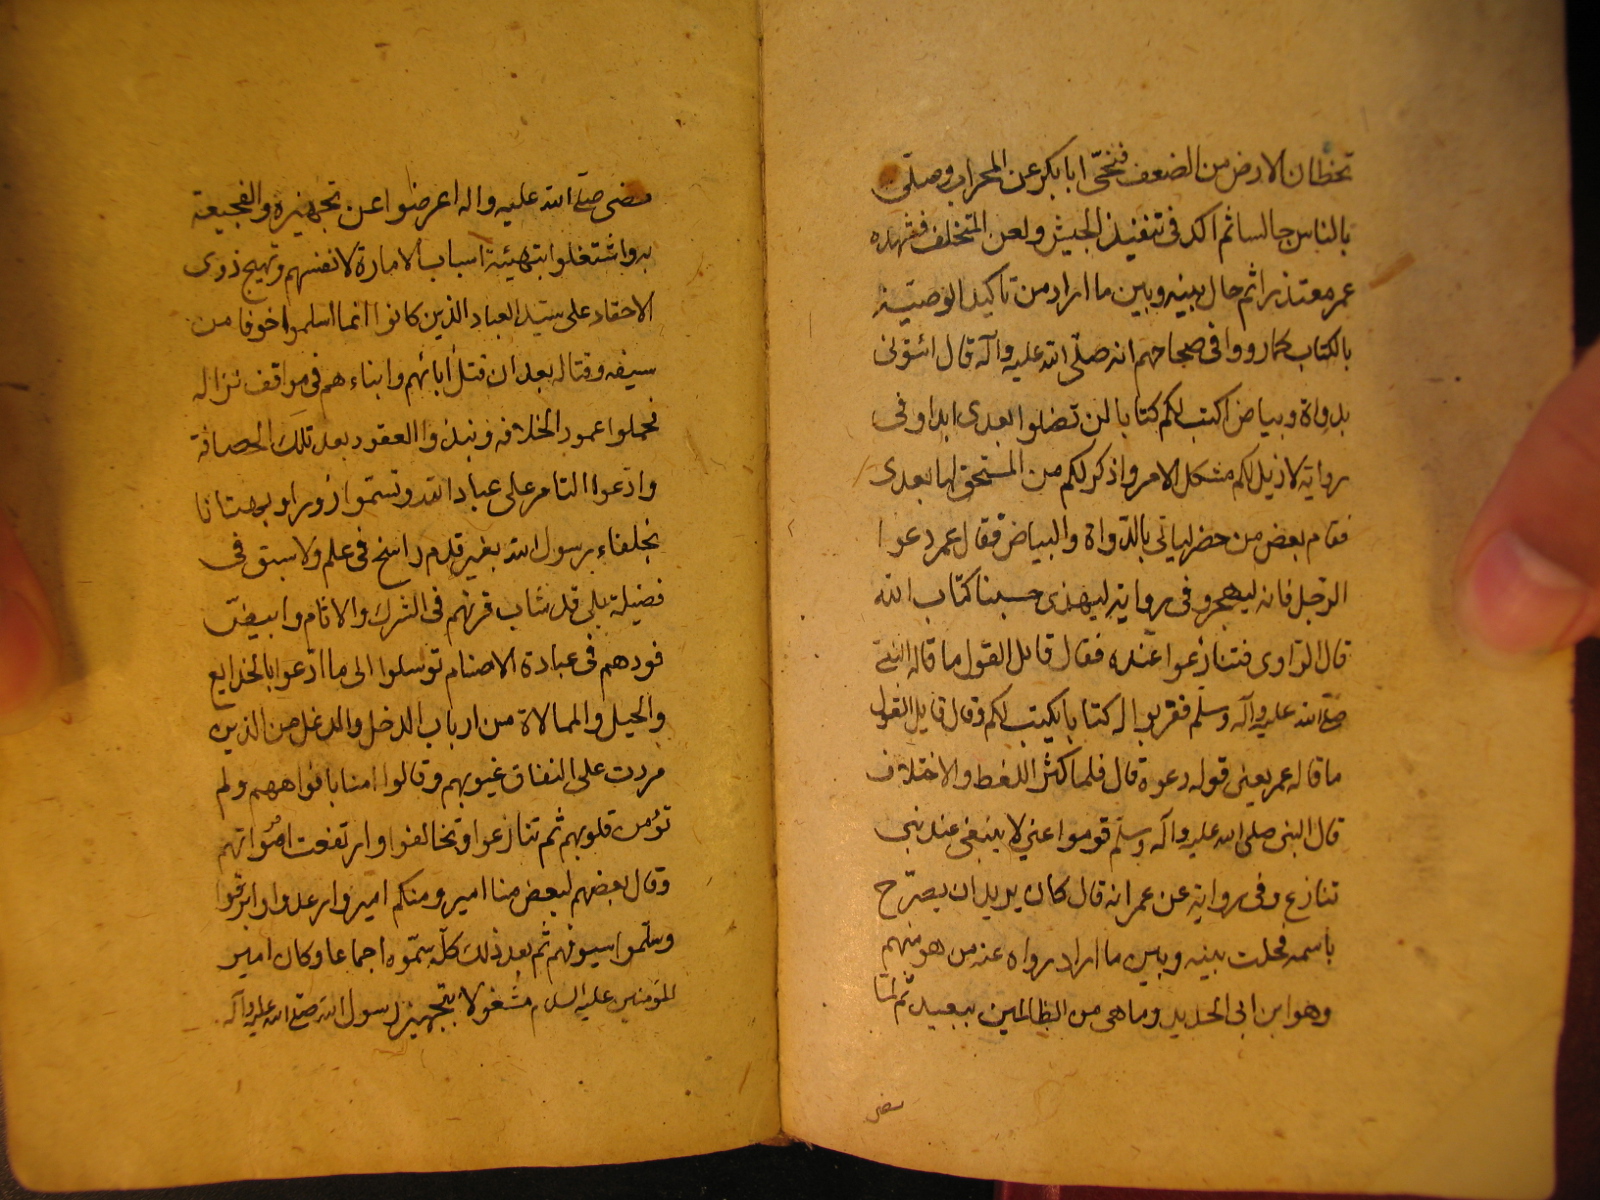 تخطان الارض من الضعف فنحّى ابا بكر عن المحراب وصلّى
بالناس جالسا ثم اكد فى تنفيذ الجيش ولعن المتخلف فقهده
عمر معتذرا ثم حال بينه وبين ما اراد من تاكيد الوصيّة
بالكتاب كما رووا فى صحاحهم انه صلّى الله عليه وآله قال ائتونى
بدواة وبياض اكتب لكم كتابا لن تضلوا بعدى ابدا وفى
رواية لازيل لكم مشكل الامر واذكر لكم من المستحق لها بعدى
فقام بعض من حضر لياتى بالدّواة والبياض فقال عمر دعوا
الرّجل فانه ليهجر وفى رواية ليهذى حسبنا كتاب الله
قال الرّاوى فتنازعوا عنده فقال قايل القول ما قاله النبى
صلى الله عليه وآله وسلّم فقربوا له كتابا يكتب لكم وقال قايل القول
ما قاله عمر يعنى قوله دعوة قال فلما كثر اللغط والاختلاف
قال النبى صلى الله عليه وآله وسلّم قوموا عنى لا ينبغى عند نبى
تنازع وفى رواية عن عمر انه قال كان يريد ان يصرّح
باسمه فحلت بينه وبين ما اراد رواه عنه من هو منهم
وهو ابن ابى الحديد وما هى من الظالمين ببعيد ثم لمّا
مضى
مضى صلى الله عليه واله اعرضوا عن تجهيزه والفجيعة
به واشتغلوا بتهيئة اسباب الامارة لانفسهم وتهيج ذوى
الاحقاد على سيّد العباد الذين كانوا انما اسلموا خوفا من
سيفه وقتاله بعد ان قتل ابائهم وابناءهم فى مواقف نزاله
فحملوا عمود الخلافه ونبذوا العقود بعد تلك الحصافة
وادّعوا التامر على عباد الله وتسمّوا زورا وبهتانا
بخلفاء رسول الله بغير قدم راسخ فى علم ولا سبق فى
فضيلة بلى قد شاب قرنهم فى الشرك والاثام وابيضّ
فودهم فى عبادة الاصنام توسلوا الى ما ادّعوا بالخدايع
والحيل والممالاة من ارباب الدخل والدغل من الذين
مردت على النفاق غيوبهم وقالوا امنا بافواههم ولم
تؤمن قلوبهم ثم تنازعوا وتخالفوا وارتفعت اصواتهم
وقال بعضهم لبعض منا امير ومنكم امير وارعدوا وابرقوا
وسلّموا سيوفهم ثم بعد ذلك كلّه سمّوه اجماعا وكان امير
المؤمنين عليه السلام مشغولا بتجهيز رسول الله صلى الله عليه وآله